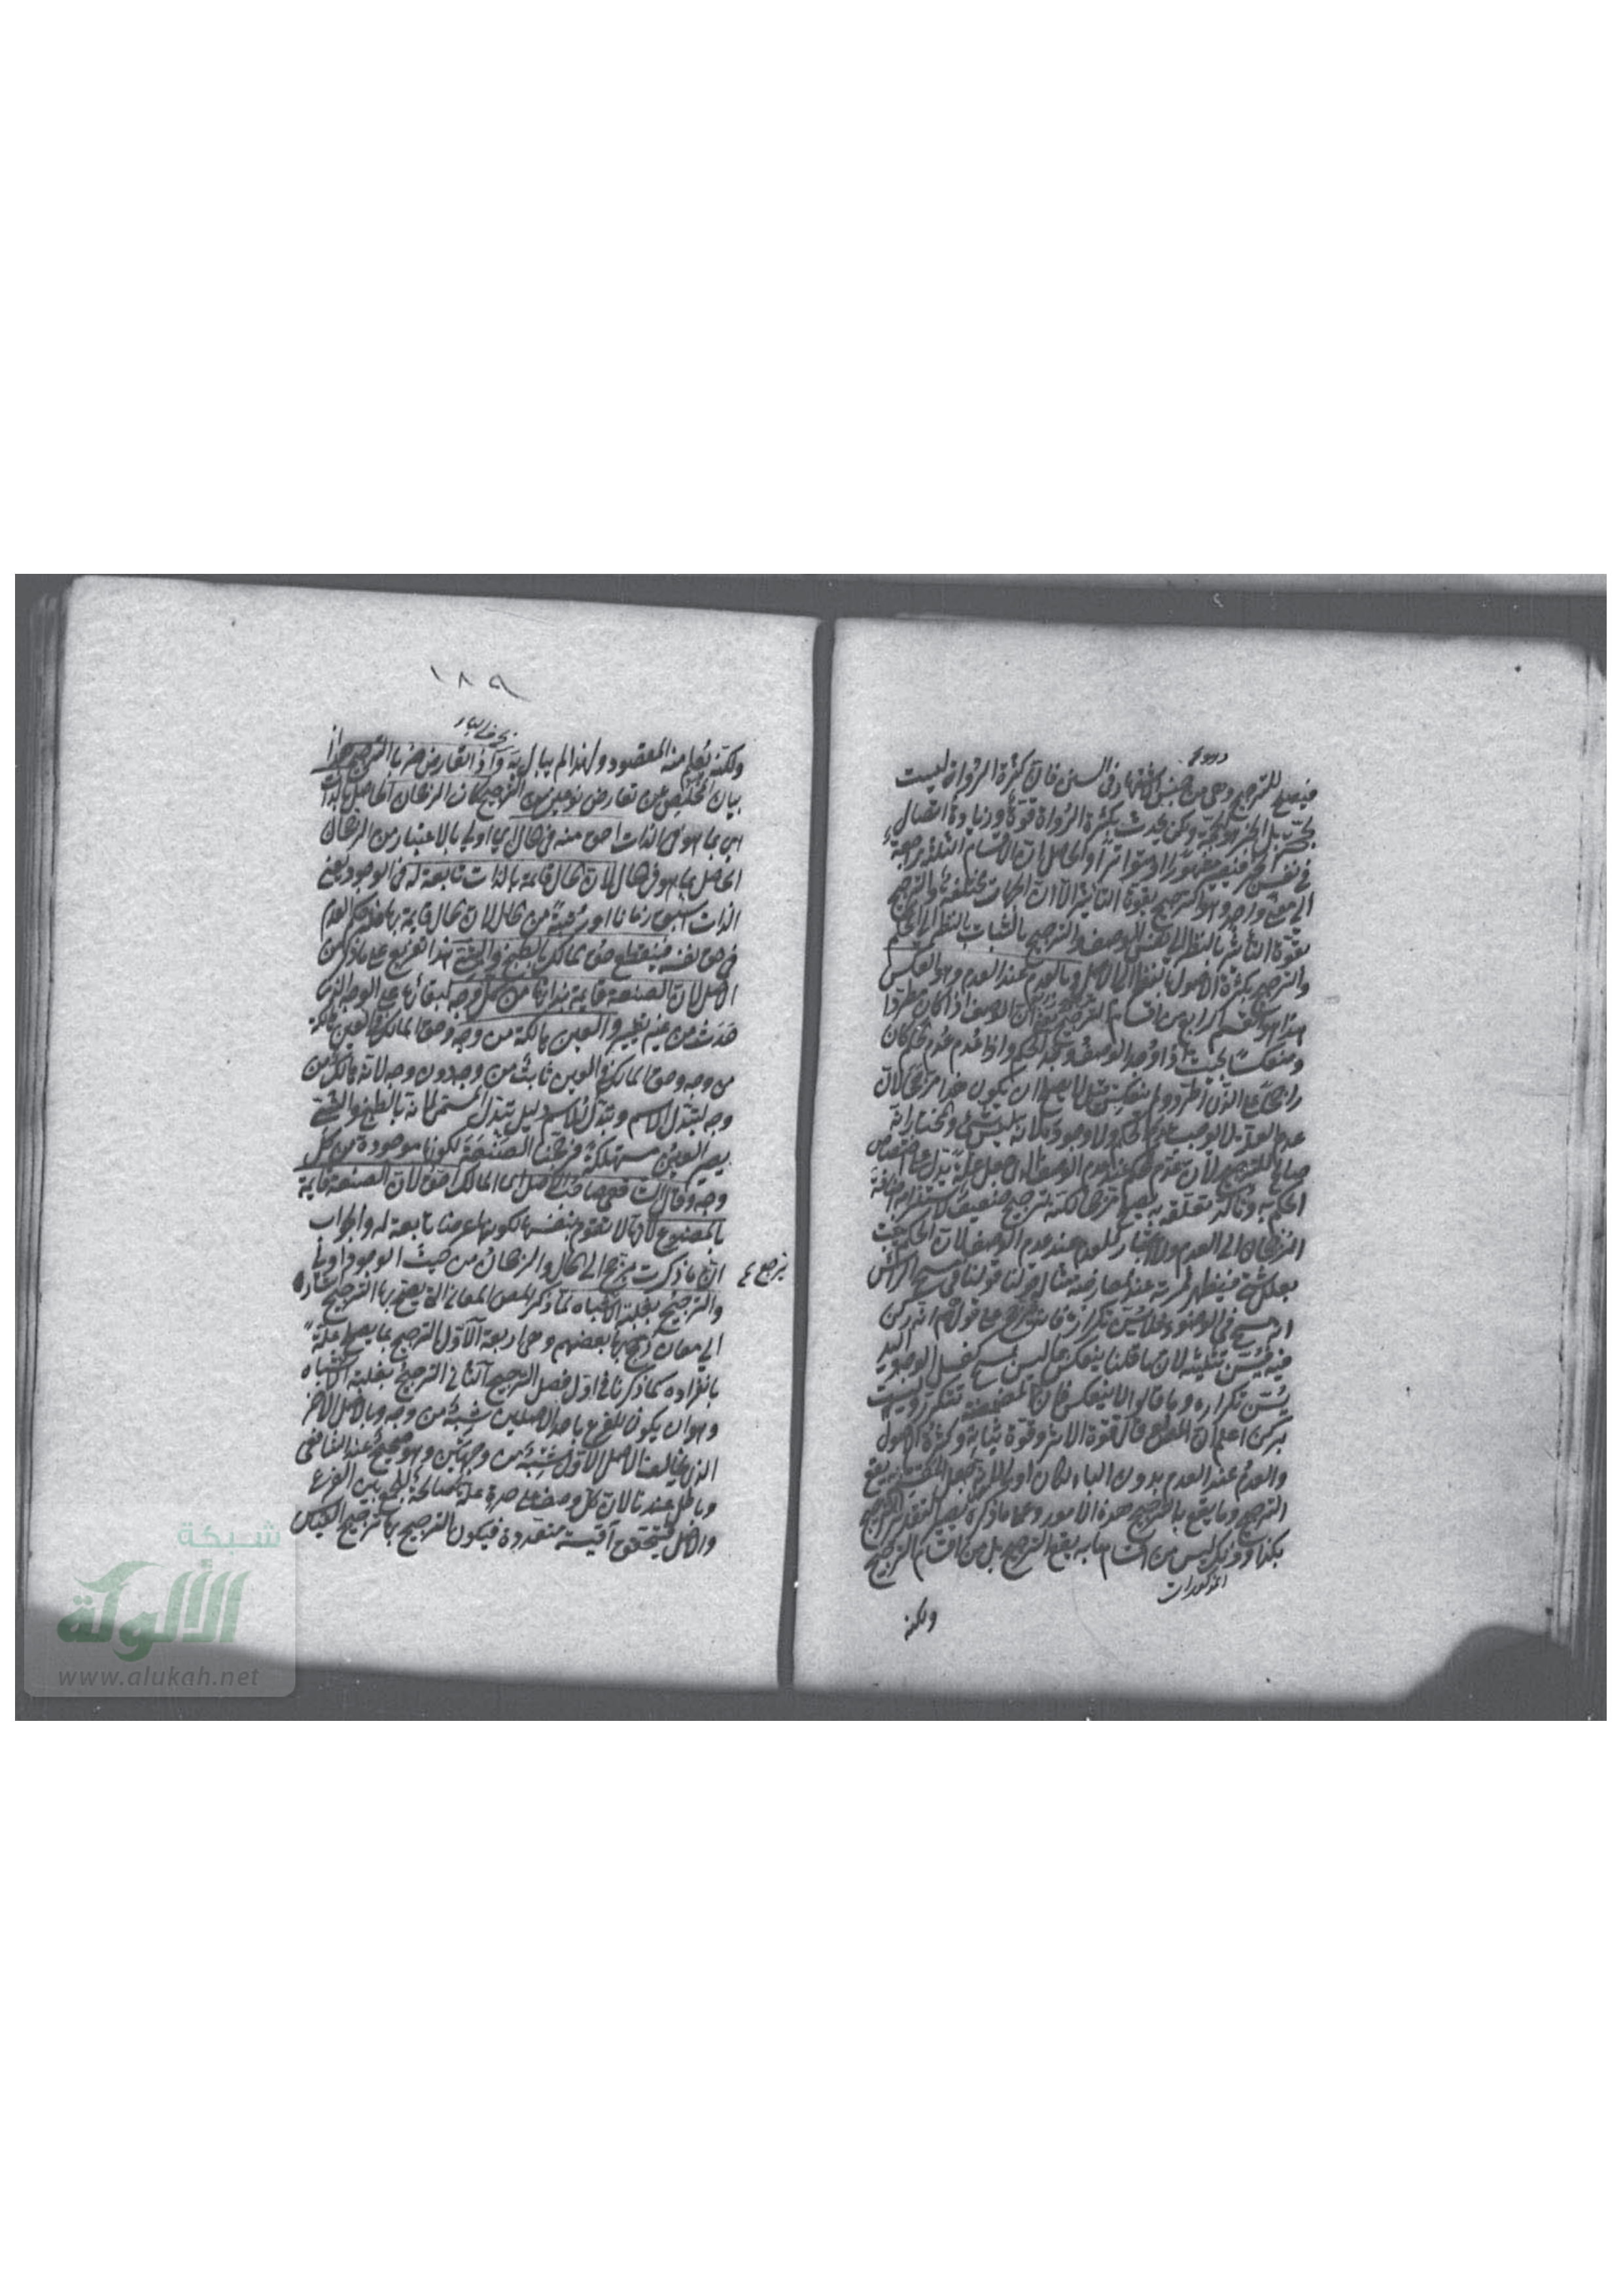 فيصلح للترجيح وهي من جنس الاشتهار في السنن فان كثرة الرواة ليست
بحجة بل الخبر هو الحجة ولكن يحدث بكثرة الرواة قوة وزيادة اتصال
في نفس الخبر فيصير مشهورا او متواترا والحاصل ان الاقسام الثلثة راجعة
الى معنى واحد وهو الترجيح بقوة التأثير الا ان الجهات مختلفة فالترجيح
بقوة التأثير بالنظر الى نفس الوصف والترجيح بالثبات بالنظر الى الحكم
والترجيح بكثرة الاصول بالنظر الى الاصل وبالعدم عند العدم وهو العكس
هذا هو القسم الرابع من اقسام الترجيح يعني ان الوصف اذا كان مطردا
ومنعكسا بحيث اذا وجد الوصف وجد الحكم واذا عدم عدم الحكم كان
راجحا على الذي اطرد ولم ينعكس
عدم العلة لا يوجب عدم الحكم ولا وجوده لانه ليس بشيء والمختار انه
صالح للترجيح لان عدم الحكم عند عدم الوصف الذي جعل علة يدل على اختصاص
الحكم به وتأكد تعلقه به فيصلح مرجحا لكنه ترجيح ضعيف لاستلزامه اضافة
الرجحان الى العدم
بعلل شتى فيظهر ثمرته عند المعارضة مثاله قولنا في مسح الرأس
انه مسح في الوضوء فلا يسن تكراره فانه يرجح على قولهم انه ركن
فيه فيسن تثليثه لان ما قلنا ينعكس بما ليس بمسح كغسل الوجه واليد
يسن تكراره وما قالوا لا ينعكس فان المضمضة تتكرر وليست
بركن اعلم ان المصنف قال قوة الاثر وقوة ثباته وكثرة الاصول
والعدم عند العدم بدون الباء لكان اولى
الترجيح وما يقع به الترجيح هذه الامور وعلى ما ذكره يصير التقدير الترجيح
بكذا وكذا وليس من اقسام ما به يقع الترجيح بل من اقسام الترجيح
المذكورات
ولكنه
١٨٩
ولكنه يعلم منه المقصود ولهذا لم يبال به واذا تعارض ضربا الترجيح هذا
بيان المخلص عن تعارض نوعين من الترجيح كان الرجحان الحاصل بالذات
اي بما هو في الذات احق منه في الحال اي اولى بالاعتبار من الرجحان
الحاصل بما هو في الحال لان الحال قائمة بالذات تابعة له في الوجود يعني
الذات اسبق زمانا او رتبة من الحال لان الحال قائمة بها فلها حكم العدم
في حق نفسه فينقطع حق المالك بالطبخ والشي هذا تفريع على ما ذكر من
الاصل لان الصنعة قائمة بذاتها من كل وجه لبقائها على الوجه الذي
حدثت من غير تغيير والعين هالكة من وجه وحق المالك في العين هالكة
من وجه وحق المالك في العين ثابت من وجه دون وجه لانه هالك من
وجه لتبدل الاسم وتبدل الاسم دليل تبدل المسمى لما انه بالطبخ والشي
يصير العين مستهلكة فرجحنا الصنعة لكونها موجودة من كل
وجه وقال الشافعي صاحب الاصل اي المالك احق لان الصنعة قائمة
بالمصنوع لانها لا تقوم بنفسها لكونها عرضا تابعة له والجواب
ان ما ذكرت يرجع الى الحال والرجحان من حيث الوجود اولى
والترجيح بغلبة الاشباه لما ذكر بعض المعاني التي يقع بها الترجيح اشارة
الى معان رجح بها بعضهم وهي اربعة الاول الترجيح بما يصلح علة
بانفراده كما ذكرنا في اول فصل الترجيح الثاني الترجيح بغلبة الاشباه
وهو ان يكون للفرع باحد الاصلين شبه من وجه وبالاصل الاخر
الذي يخالف الاصل الاول شبه من وجهين وهو صحيح عند الشافعي
وباطل عندنا لان كل وصف على حدة علة صالحة للجمع بين الفرع
والاصل فيتحقق اقيسة متعددة فيكون الترجيح بها ترجيح القياس
شبكة
الألوكة
www.alukah.net